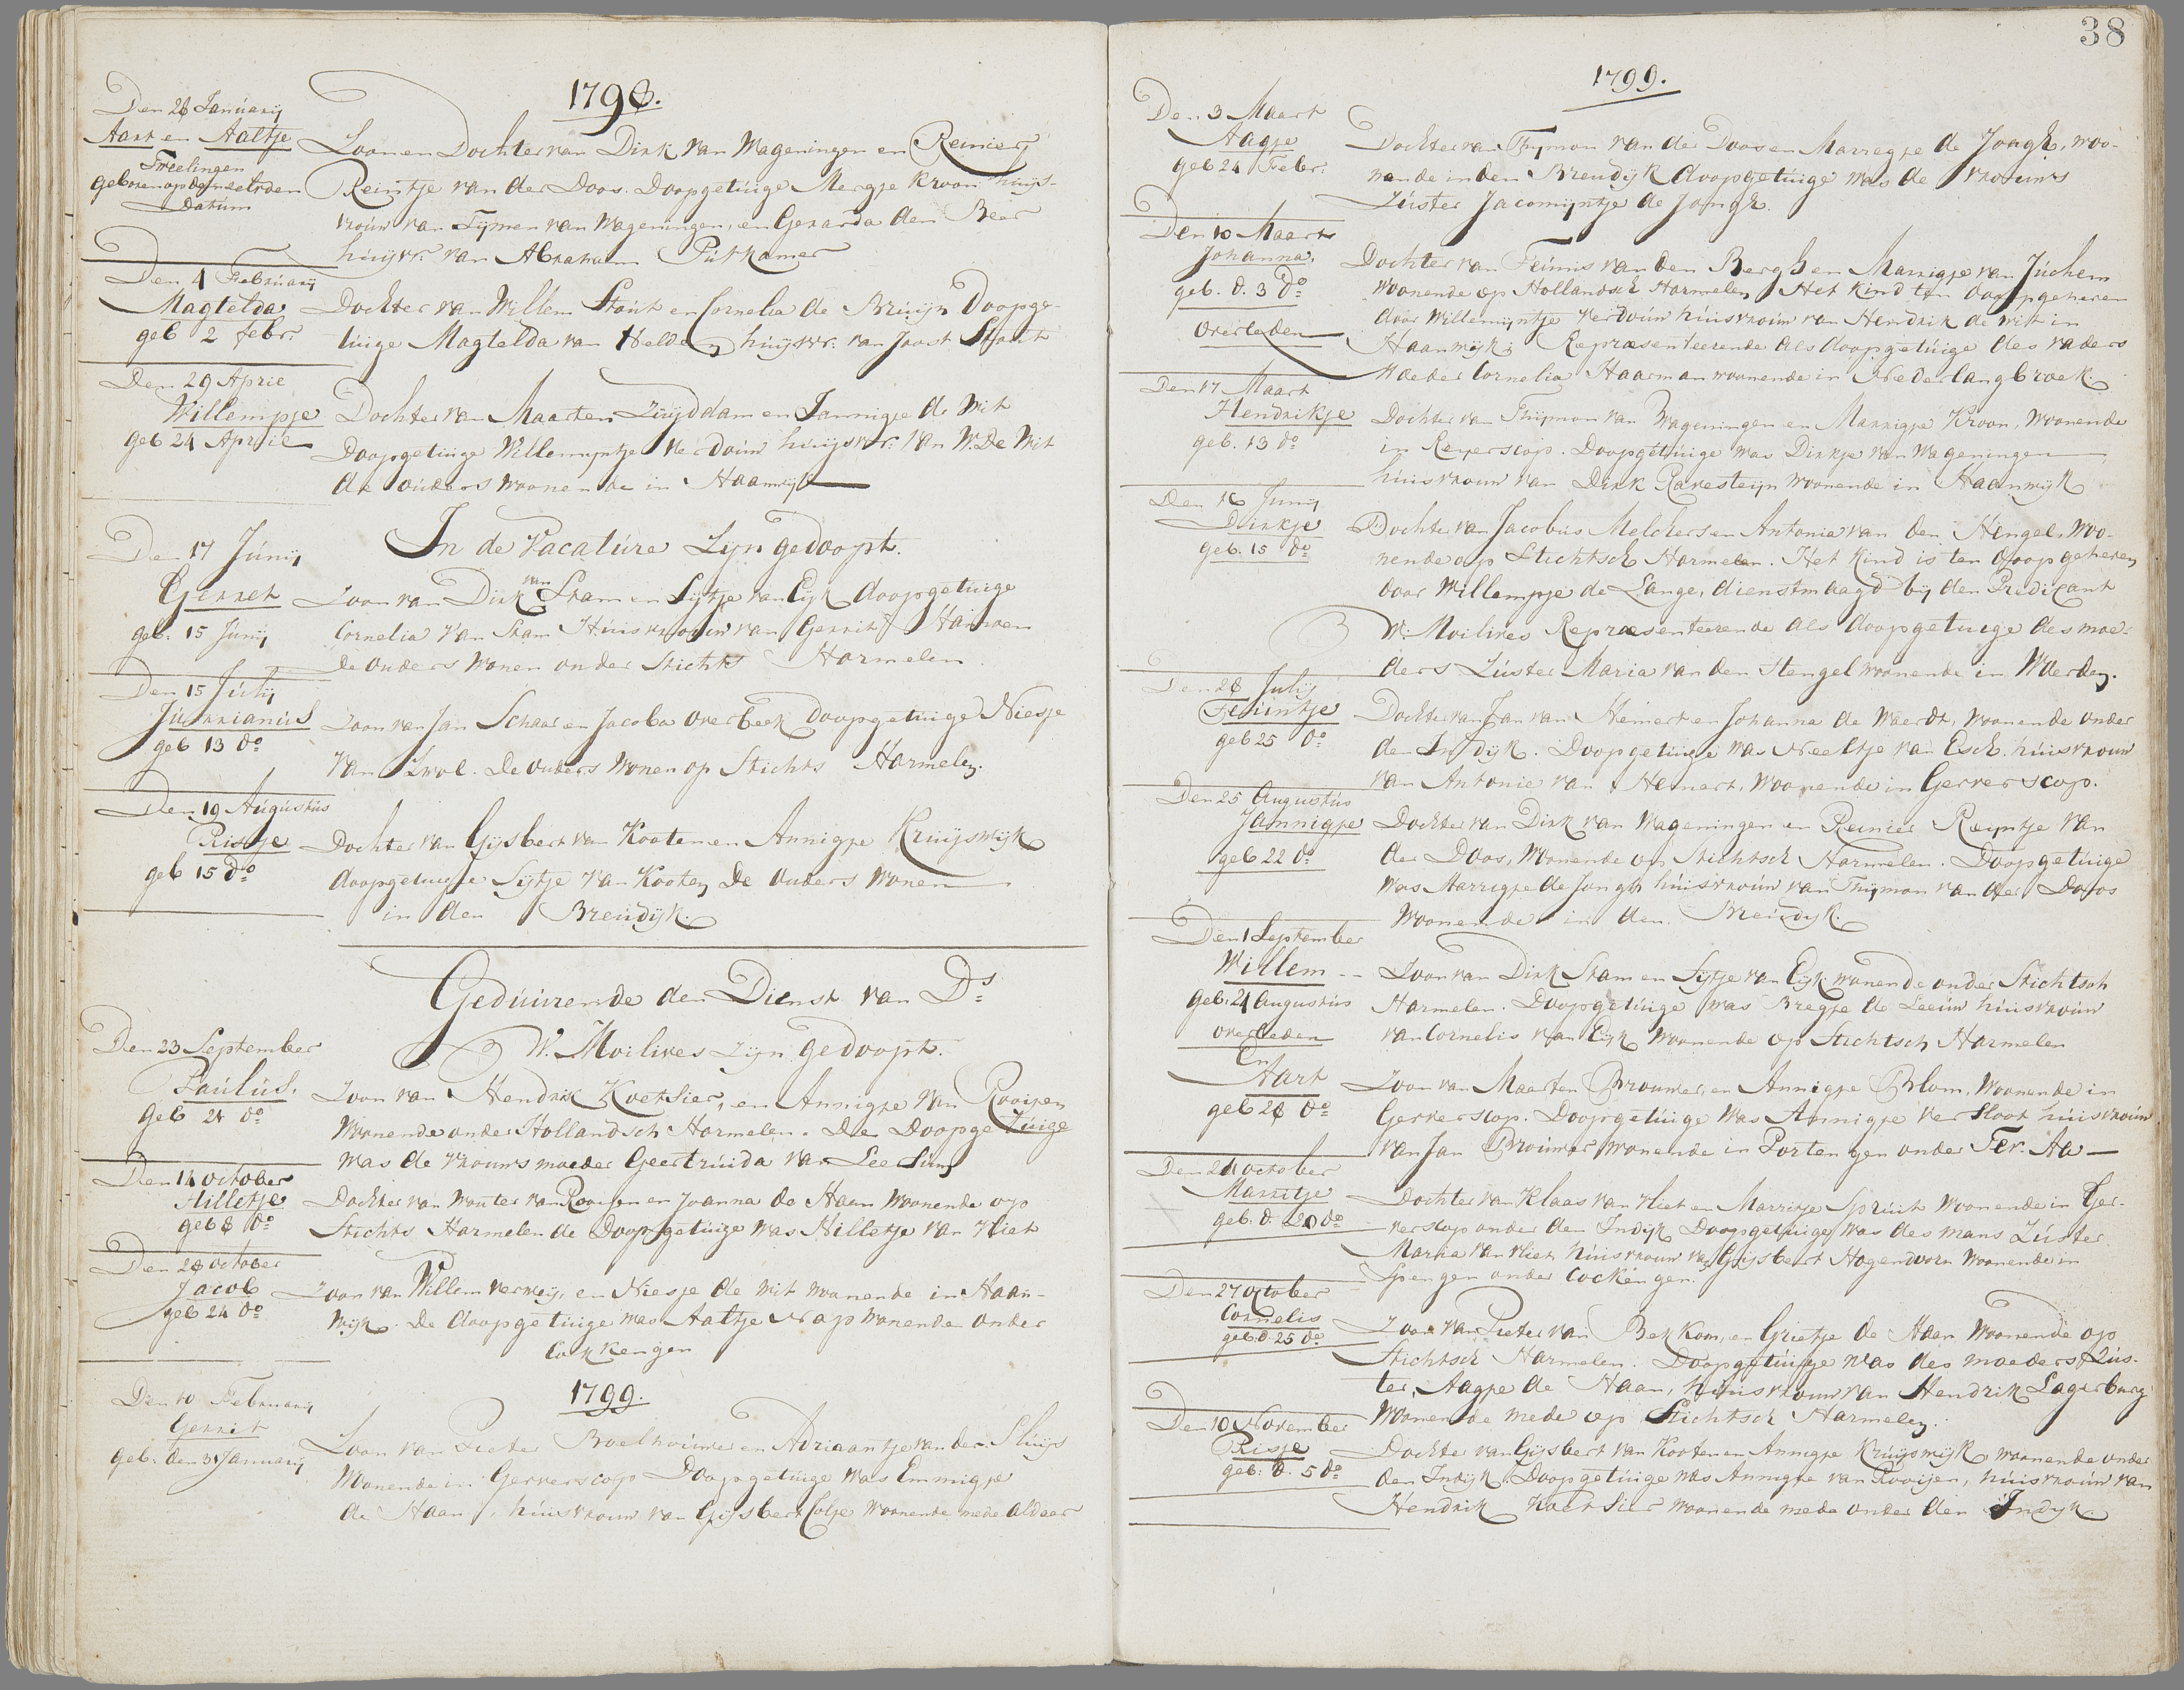 1798.
Den 28 Januarij
Aart en Aaltje
Tweelingen
geboren op de meerden
Datum
Zoon en Dochter van Dirk van Wageningen en Reinier
Reintje van der Doos. Doopgetuige Mergje Kroon huijs-
vrouw van Tijmen van Wageningen, en Gerarda den Beer
huijsvr. van Abraham Putkamer
Den 4 Februarij
Magtelda
geb 2 febr:
Dochter van Willem Stout en Cornelia de Bruijn Doopge-
tuige Magtelda van Helden huijsvr. van Joost Stout
Den 29 Aprie
Willempje
geb 24 Aprie
Dochter van Maarten Zuijddam en Jannigje de Wit
Doopgetuige Willemijntje Verdouw huijsvr: van W. De Wit
de ouders woonende in Haanwijk
In de Vacature Zijn gedoopt.
Den 17 Junij
Gerret
geb. 15 Junij
Zoon van Dirk van Stam en Sijtje van Eijk doopgetuige
Cornelia van Stam Huisvrouw van Gerrit Hansen
De ouders wonen onder Stichts Harmelen
Den 15 Julij
Jurrianus
geb 13 do
Zoon van Jan Schaar en Jacoba overbeek Doopgetuige Niesje
van Zwol. De ouders wonen op Stichts Harmelen.
Den 19 Augustus
Risje
geb 15 do
Dochter van Gijsbert van Kooten en Annigje Kruijswijk
doopgetuige Sijtje van Kooten De ouders wonen
in den Breudijk.
Geduurende den Dienst van Ds
W. Moilives zijn gedoopt.
Den 23 September
Paulus.
geb 21 do
Zoon van Hendrik Koetsier, en Annigje van Rooijen
Woonende onder Hollandsch Harmelen. De Doopgetuige
was de vrouws moeder Geertruida van Leersum
Den 14 october
Hilletje
geb 8 do
Dochter van Wouter van Rooijen en Joanna de Haan Woonende op
Stichts Harmelen de Doopgetuige was Hilletje van Vliet
Den 28 october
Jacob
geb 24 do
Zoon van Willem verweij, en Niesje de Wit woonende in Haan-
wijk. De doopgetuige was Aaltje Nap wonende onder
Cokkengen
1799.
Den 10 Februarij
Gerrit
geb. den 31 Januarij
Zoon van Pieter Boelhouwer en Adriaantje van der Sluijs
Wonende in Gerverscop Doopgetuige was Emmigje
de Haan, huisvrouw van Gijsbert Colje woonende mede aldaar
38
1799.
Den 3 Maart
Aagje
geb 24 Febr:
Dochter van Thijmon van der Doos en Marregje de Jongh, woo-
nende in den Breudijk doopgetuige was de vrouws
Zuster Jacomijntje de Jongh.
Den 10 Maart
Johanna,
geb. d. 3 do
overleden
Dochter van Teunis van den Bergh en Marrigje van Juchem
woonende op Hollandsch Harmelen Het kind ten doop geheven
door Willemijntje Verdouw huisvrouw van Hendrik de Wit in
Haanwijk; Repraesenteerende als doopgetuige des vaders
Moeder Cornelia Haarman woonende in Nederlangbroek.
Den 17 Maart
Hendrikje
geb. 13 do
Dochter van Thijmon van Wageningen en Marrigje Kroon, Woonende
in Reyerscop. Doopgetuige was Dirkje van Wageningen
huisvrouw van Dirk Ravesteijn woonende in Haanwijk
Den 16 Junij
Dirkje
geb. 15 do
Dochter van Jacobus Melchers en Antonia van den Hengel, Woo-
nende op Stichtsch Harmelen. Het kind is ten doop geheven
door Willempje de Lange, dienstmaagd bij den Predicant
W: Moilives Repraesenteerende als doopgetuige des moe-
ders Zuster Maria van den Hengel woonende in Woerden.
Den 28 Julij
Teuntje
geb 25 do
Dochter van Jan van Hemert en Johanna de Waerdt, Woonende onder
den Indijk. Doopgetuige was Neeltje van Esch. huisvrouw
van Antonie van Hemert, Woonende in Gerverscop.
Den 25 Augustus
Jannigje
geb 22 do
Dochter van Dirk van Wageningen en Reinier Reijntje van
der Doos, Woonende op Stichtsch Harmelen. Doopgetuige
was Marregje de Jongh huisvrouw van Thijmon van der Doos
Woonende in den Breudijk.
Den 1 September
Willem
geb. 21 Augustus
overleden
Zoon van Dirk Stam en Sijtje van Eijk wonende onder Stichtsch
Harmelen. Doopgetuige was Bregje de Leeuw huisvrouw
van Cornelis van Eijk Woonende op Stichtsch Harmelen
En
Aart
geb 28 do
Zoon van Maarten Brouwer, en Annigje Blom, Woonende in
Gerverscop. Doopgetuige was Annigje versloot huisvrouw
van Jan Brouwer wonende in Portengen onder Ter Aa
Den 20 october
Marritje
geb. d. 20 do
Dochter van Klaas van Vliet en Marritje Spruit Woonende in Ger-
verscop onder den Indijk Doopgetuige was des mans Zuster
Maria van Vliet huisvrouw van Gijsbert Hogendoorn Woonende in
Spengen onder Cockengen.
Den 27 october
Cornelis
geb. d. 25 do
Zoon van Pieter van Bekkom, en Grietje de Haan Woonende op
Stichtsch Harmelen. Doopgetuige was des moeders Zus-
ter, Aagje de Haan, huisvrouw van Hendrik Lagerburg
Woonende mede op Stichtsch Harmelen.
Den 10 November
Risje
geb. d. 5 do
Dochter van Gijsbert van Kooten en Annigje Kruijswijk woonende onder
den Indijk. Doopgetuige was Annigje van Rooijen, huisvrouw van
Hendrik Koetsier Woonende mede onder den Indijk.